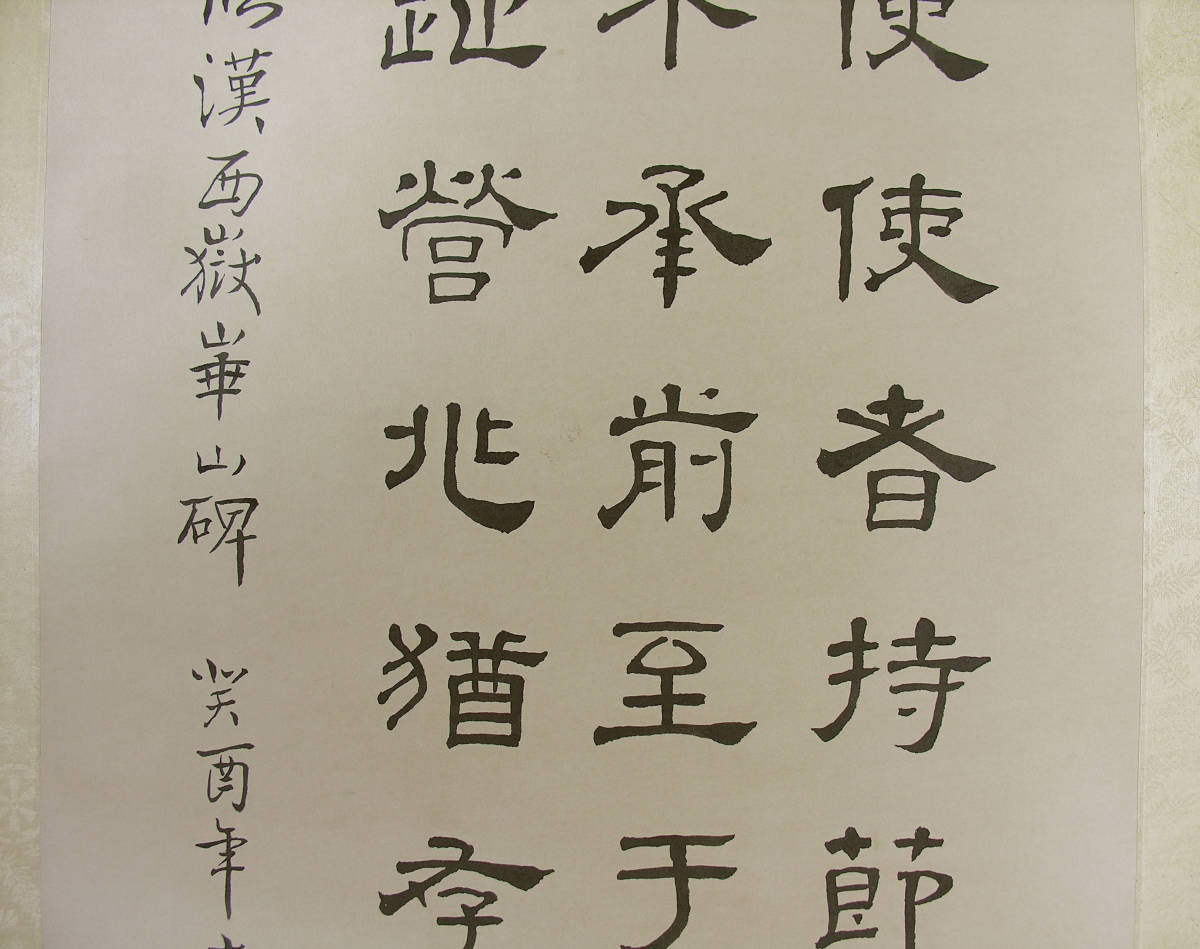 使使者持節
不承前至于
趾營兆猶存
漢西嶽崋山碑 癸酉年